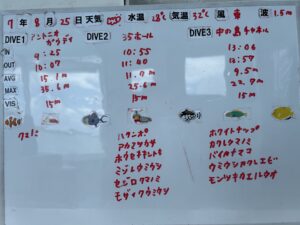 7年 8月 25日 天気 水温 28℃ 気温 32℃ 風 東 波 1.5m
DIVE1) アントニオガウディ DIVE2) 35ホール DIVE3 中の島チャネル
IN 9:25 10:55 13:06
OUT 10:07 11:40 13:57
AVG 15.1 11.0 9.5m
MAX 35.6m 25.6m 22.9m
VIS 15m 15m 15m
クマノミ ハタンポ ホワイトチップ
アカマツカサ カクレクマノミ
ホウセキキントキ バイカナマコ
ミゾレウミウシ ウミウシカクレエビ
セジロクマノミ モンツキカエルウオ
モザイクウミウシ